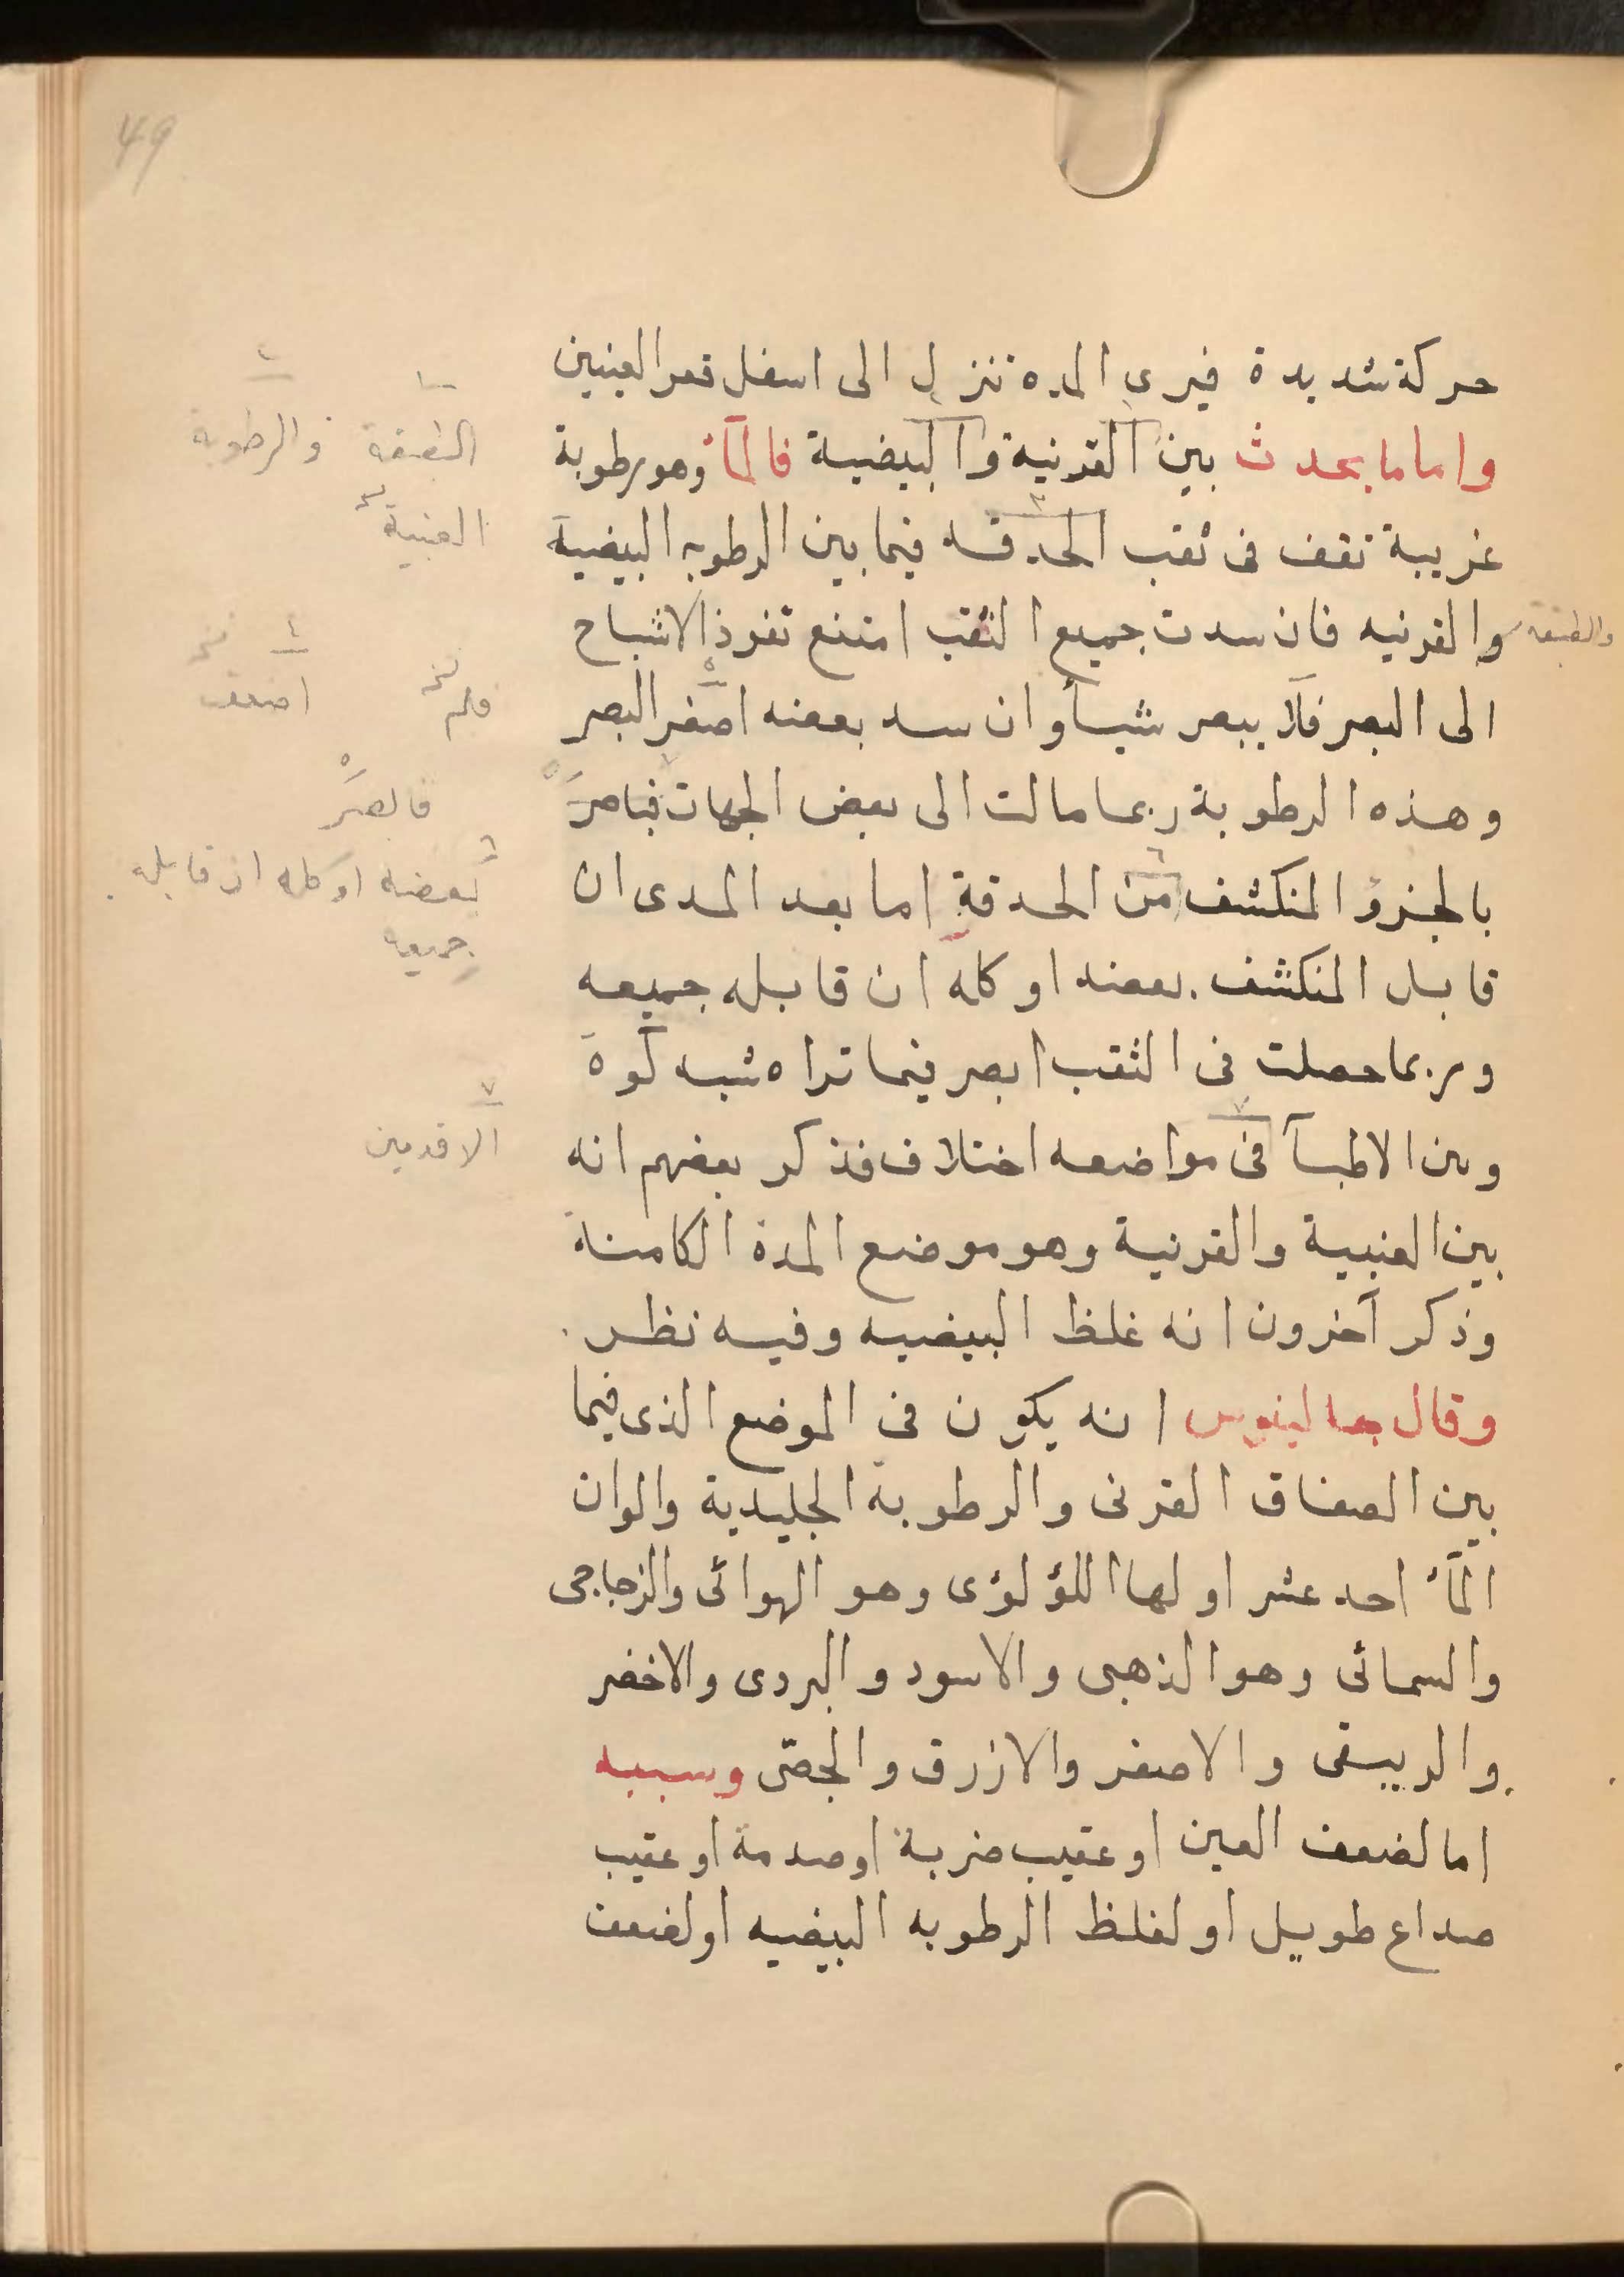 49
حركة شديدة فيرى المده تنزل الى اسفل قعر العينين
واما ما يحدث بين القرنية والبيضية فالمآء وهو رطوبة
غريبة تقف فى ثقب الحدقه فيما بين الرطوبه البيضية
والقرنيه فان سدت جميع الثقب امتنع نفوذ الاشباح
الى البصر فلا يبصر شيأ وان سد بعضه اصغر البصر
وهذه الرطوبة ربما مالت الى بعض الجهات فباصر
بالجزؤ المنكشف من الحدقة اما بعد المدى ان
قابل المنكشف بعضه او كله ان قابله جميعه
وربما حصلت فى الثقب ابصر فيما تراه شبه كوة
وبين الاطبآ فى مواضعه اختلاف فذكر بعضهم انه
بين العنبية والقرنية وهو موضع المدة الكامنة
وذكر آخرون انه غلظ البيضيه وفيه نظر
وقال جالينوس انه يكون فى الموضع الذى فيما
بين الصفاق القرنى والرطوبة الجليدية والوان
المآء احد عشر اولها اللؤلؤى وهو الهوائى والزجاجى
والسمائى وهو الذهبى والاسود والبردى والاخضر
والريبقى والاصفر والازرق والجصّى وسببه
اما لضعف العين او عقيب ضربة او صدمة او عقيب
صداع طويل او لغلظ الرطوبه البيضيه او لضعف
والطبقة
١ الطبقة
٢ والرطوبة
العنبية ٣
فلم
٤ اضعف
٥ فابصر
٦ بعضه او كله ان قابله
جميعه
٧ الاقدمين